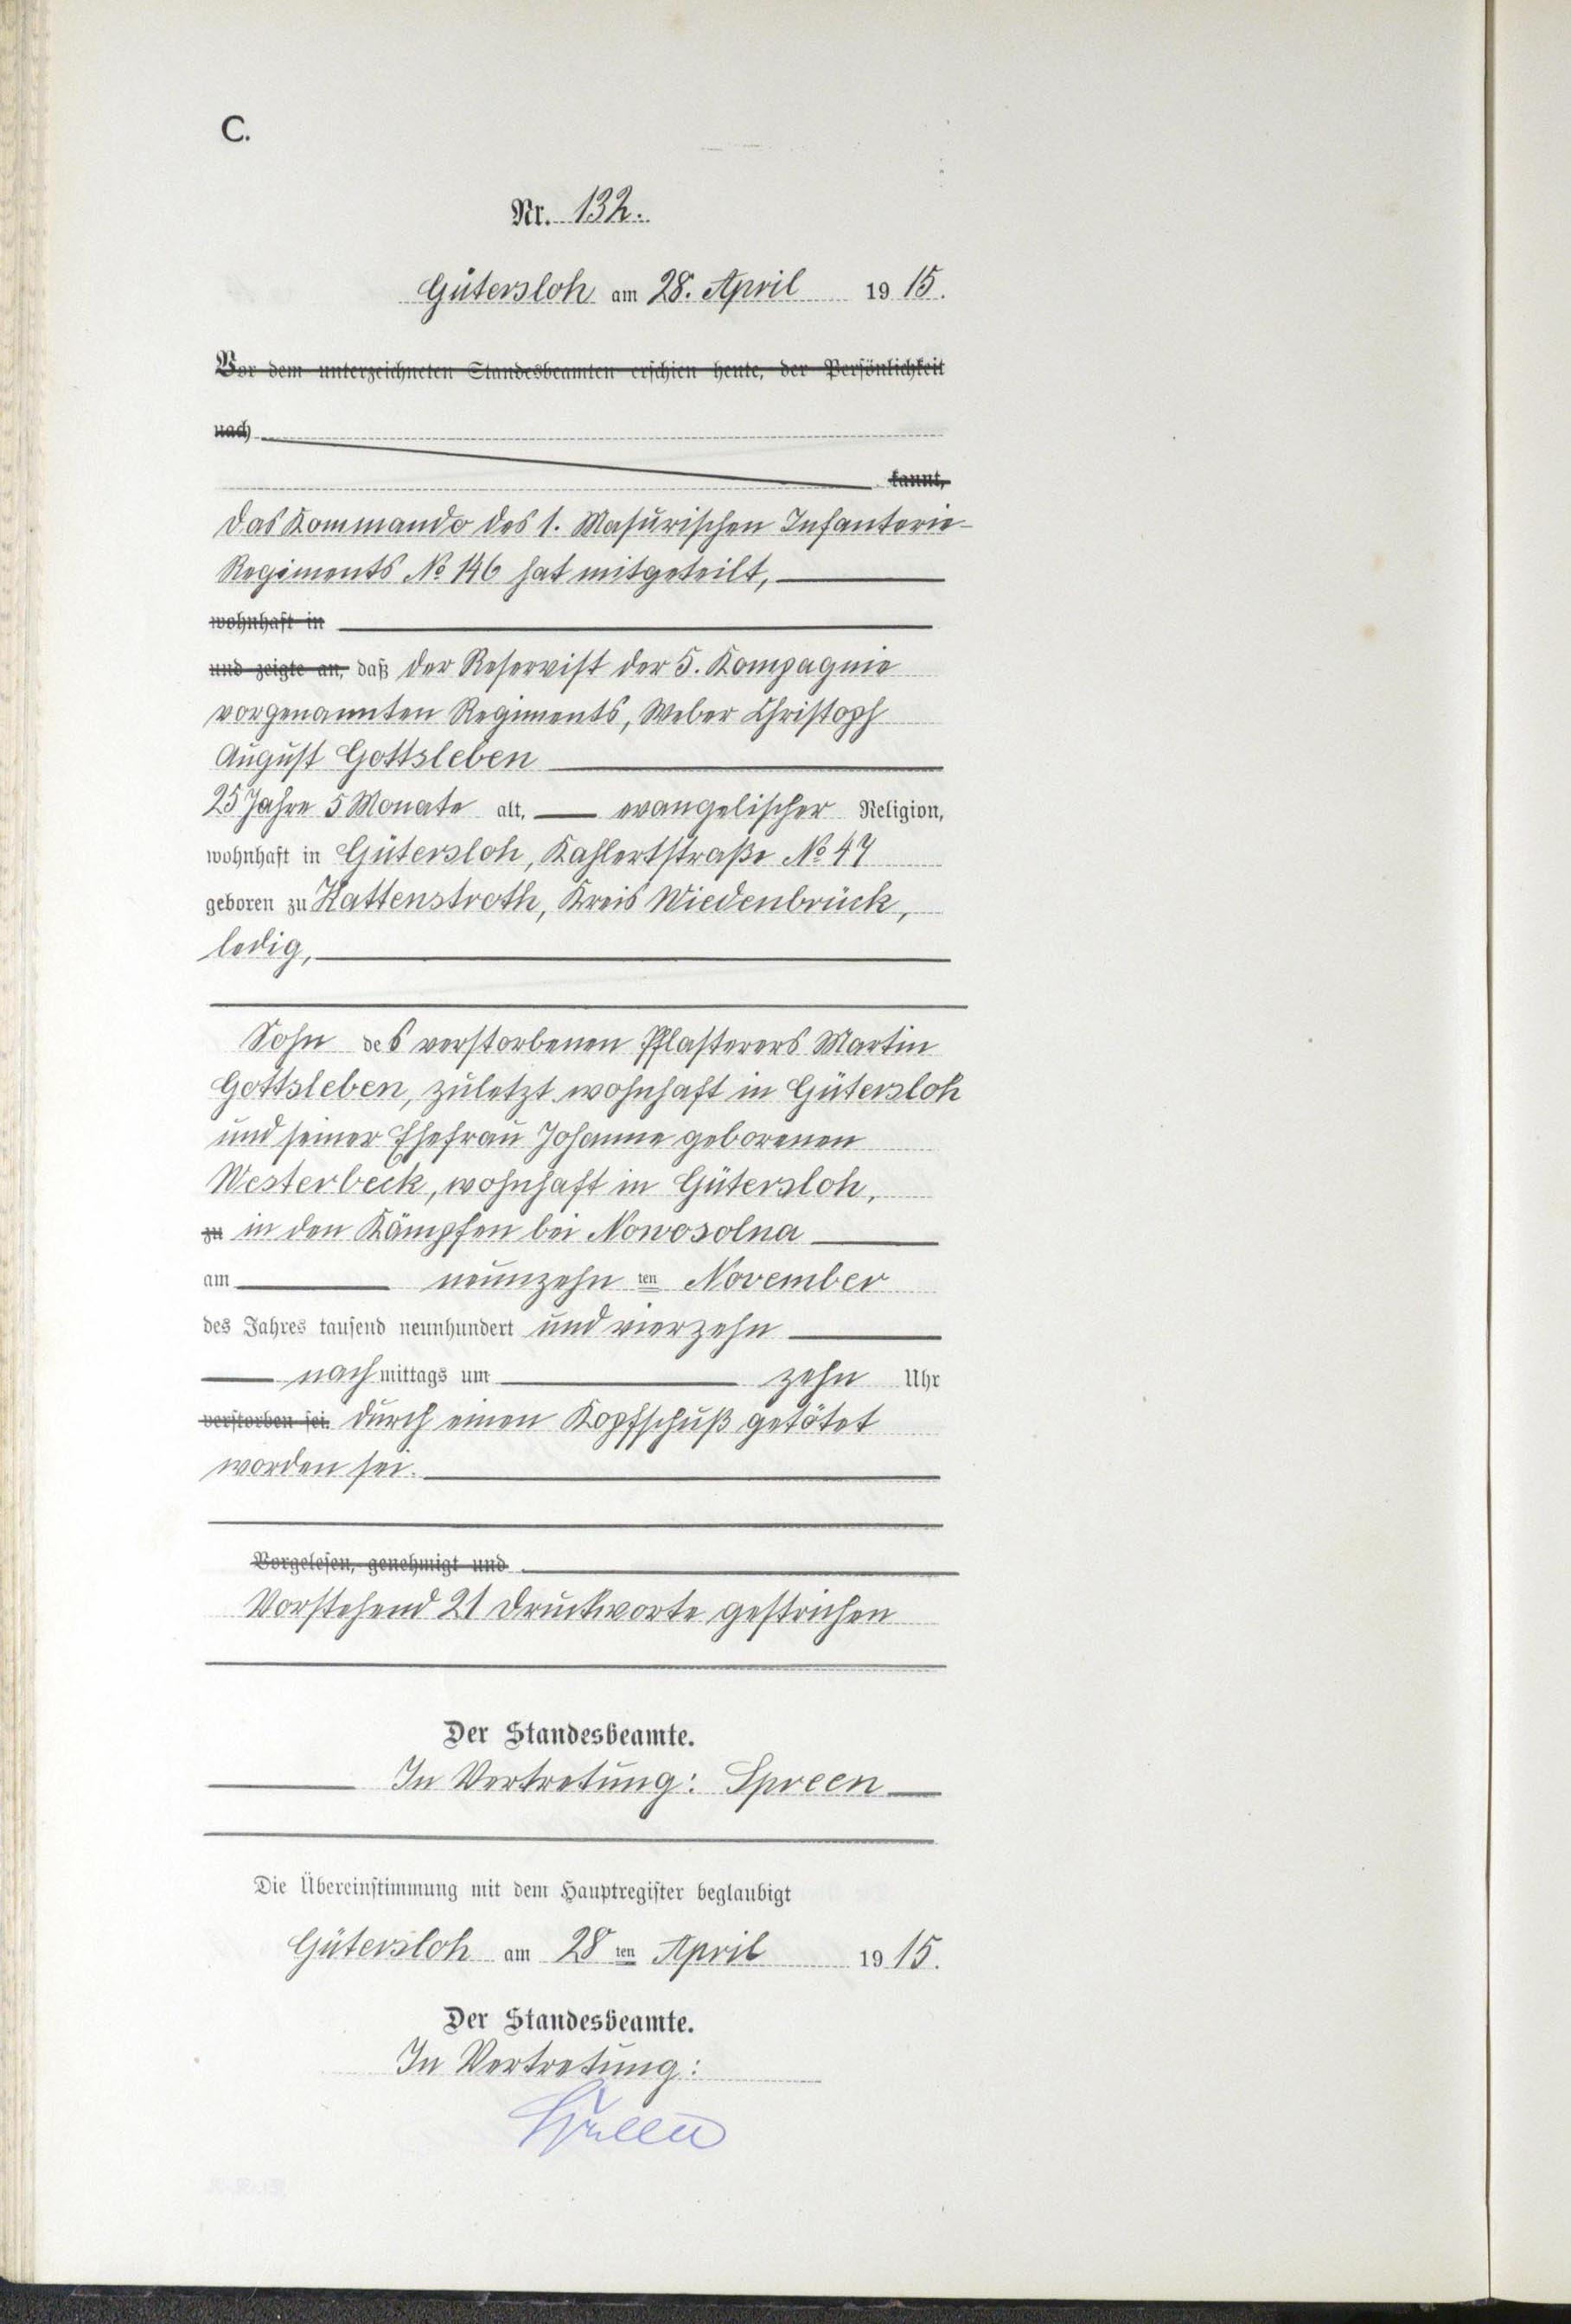 C.
Nr. 132.
Gütersloh am 28. April 19 15.
Vor dem unterzeichneten Standesbeamten erschien heute, der Persönlichkeit
nach
kannt,
das Kommando des 1. Masurischen Infanterie-
Regiments No 146 hat mitgeteilt,
wohnhaft in
und zeigte an, daß der Reservist der 5. Kompagnie
vorgenannten Regiments, Weber Christoph
August Gottsleben
25 Jahre 5 Monate alt, evangelischer Religion,
wohnhaft in Gütersloh, Kahlertstraße No 47
geboren zu Kattenstroth, Kreis Wiedenbrück,
ledig,
Sohn des verstorbenen Pflasterers Martin
Gottsleben, zuletzt wohnhaft in Gütersloh
und seiner Ehefrau Johanne geborenen
Westerbeck, wohnhaft in Gütersloh,
zu in den Kämpfen bei Nowosolna
am neunzehn ten November
des Jahres tausend neunhundert und vierzehn
nachmittags um zehn Uhr
verstorben sei. durch einen Kopfschuß getötet
worden sei.
Vorgelesen, genehmigt und
Vorstehend 21 Druckworte gestrichen
Der Standesbeamte.
In Vertretung: Spreen
Die Übereinstimmung mit dem Hauptregister beglaubigt
Gütersloh am 28 ten April 19 15.
Der Standesbeamte.
In Vertretung:
Spreen